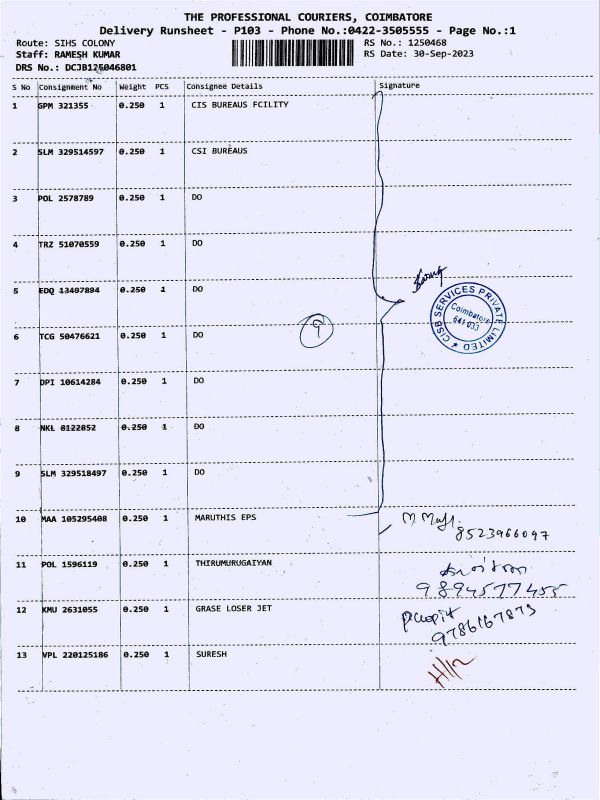 THE PROFESSIONAL COURIERS, COIMBATORE
Delivery Runsheet - P103 - Phone No.:0422-3505555 - Page No.:1
Route: SIHS COLONY RS No.: 1250468
Staff: RAMESH KUMAR RS Date: 30-Sep-2023
DRS No.: DCJB125046801
S No Consignment No Weight PCS Consignee Details Signature
1 GPM 321355 0.250 1 CIS BUREAUS FCILITY
2 SLM 329514597 0.250 1 CSI BUREAUS
3 POL 2578789 0.250 1 DO
4 TRZ 51070559 0.250 1 DO
5 EDQ 13497894 0.250 1 DO
CISB SERVICES PRIVATE LIMITED
Coimbatore
641 033
6 TCG 50476621 0.250 1 DO 9
7 DPI 10614284 0.250 1 DO
8 NKL 8122852 0.250 1 DO
9 SLM 329518497 0.250 1 DO
10 MAA 105295408 0.250 1 MARUTHIS EPS
8523966097
11 POL 1596119 0.250 1 THIRUMURUGAIYAN
9894577455
12 KMU 2631055 0.250 1 GRASE LOSER JET
9786167873
13 VPL 220125186 0.250 1 SURESH